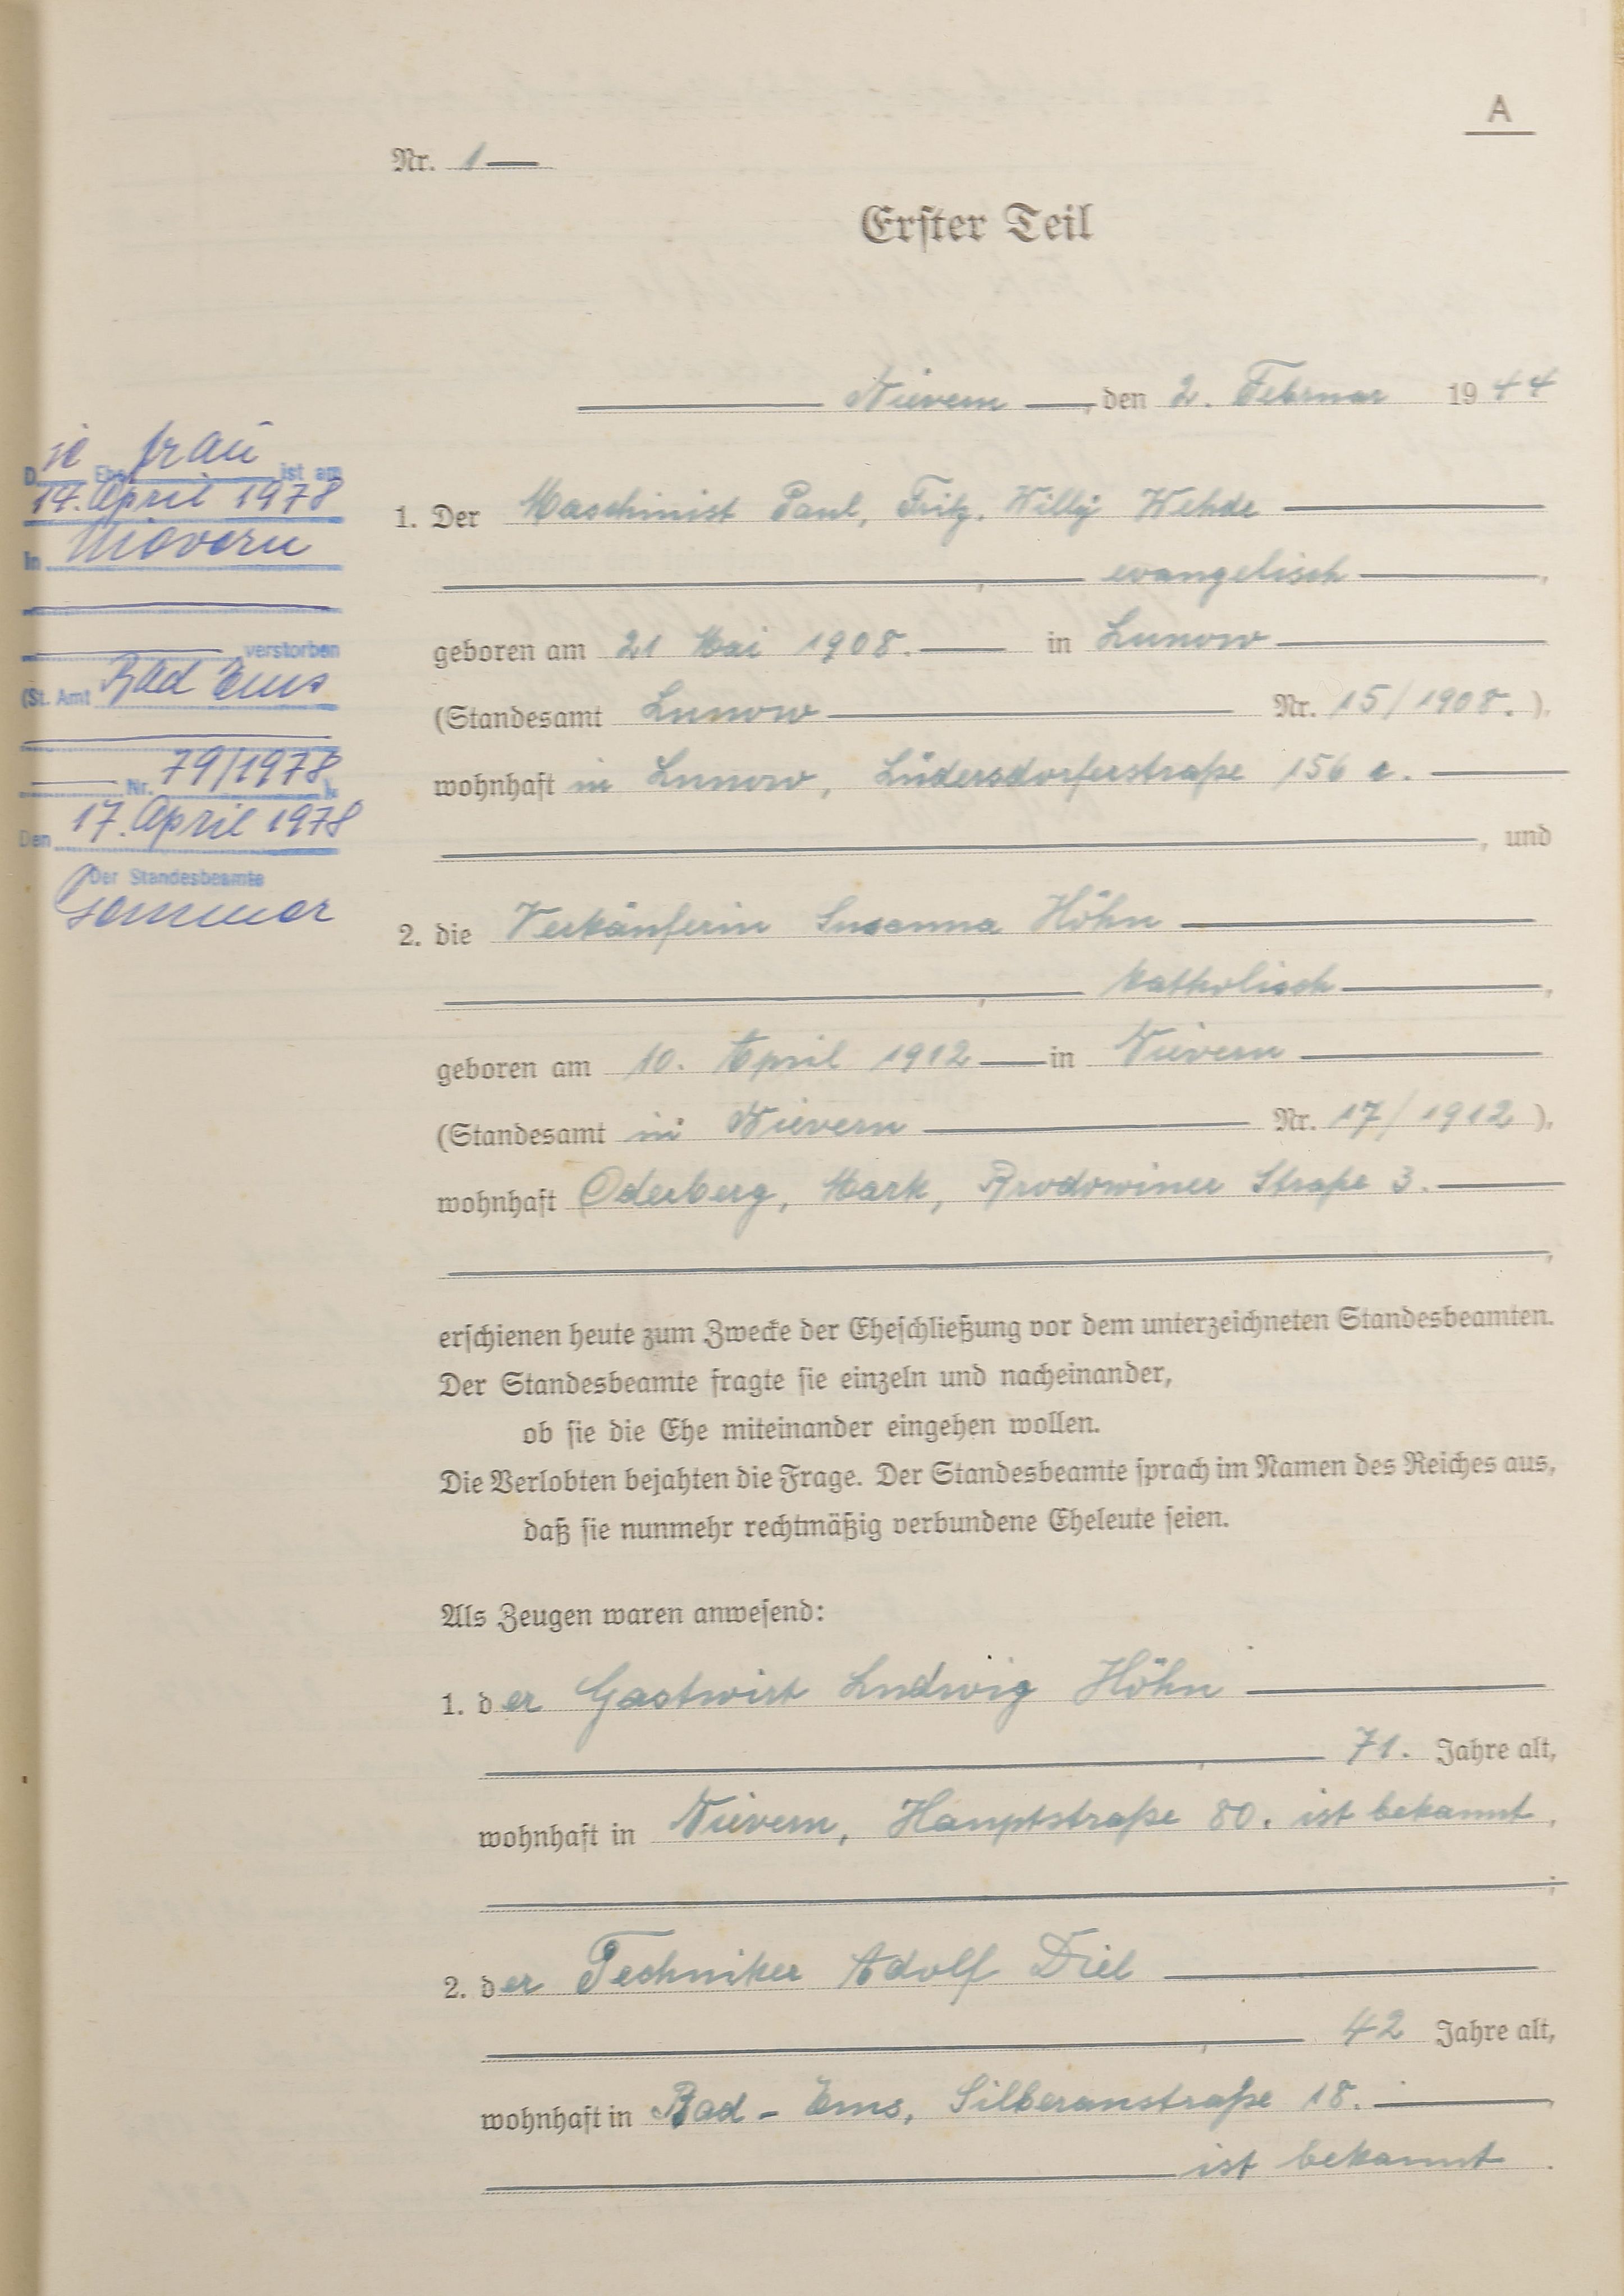 A
Nr. 1
Erster Teil
Nievern, den 2. Februar 1944
Die Ehefrau ist am
14. April 1978
in Nievern
verstorben
(St. Amt Bad Ems
Nr. 79/1978).
Den 17. April 1978
Der Standesbeamte
Sommer
1. Der Maschinist Paul, Fritz, Willy Wehde
, evangelisch,
geboren am 21 Mai 1908. in Lunow
(Standesamt Lunow Nr. 15/1908.),
wohnhaft in Lunow, Lüdersdorferstraße 156 c.
, und
2. die Verkäuferin Susanna Höhn
, katholisch,
geboren am 10. April 1912 in Nievern
(Standesamt in Nievern Nr. 17/1912),
wohnhaft Oderberg, Mark, Brodowiner Straße 3.
,
erschienen heute zum Zwecke der Eheschließung vor dem unterzeichneten Standesbeamten.
Der Standesbeamte fragte sie einzeln und nacheinander,
ob sie die Ehe miteinander eingehen wollen.
Die Verlobten bejahten die Frage. Der Standesbeamte sprach im Namen des Reiches aus,
daß sie nunmehr rechtmäßig verbundene Eheleute seien.
Als Zeugen waren anwesend:
1. der Gastwirt Ludwig Höhn
, 71. Jahre alt,
wohnhaft in Nievern, Hauptstraße 80. ist bekannt,
;
2. der Techniker Adolf Diel
, 42 Jahre alt,
wohnhaft in Bad-Ems, Silberaustraße 18.,
ist bekannt.